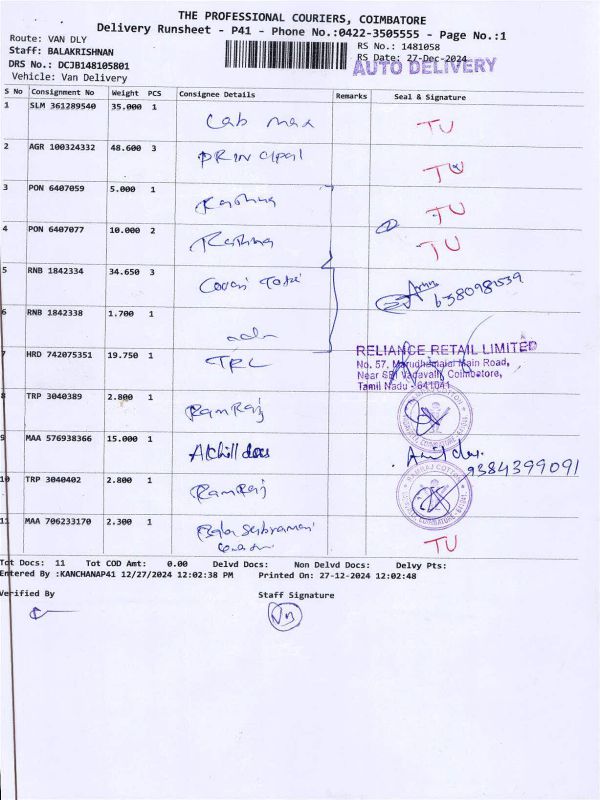 THE PROFESSIONAL COURIERS, COIMBATORE
Delivery Runsheet - P41 - Phone No.:0422-3505555 - Page No.:1
Route: VAN DLY
Staff: BALAKRISHNAN
DRS No.: DCJB148105801
Vehicle: Van Delivery
RS No.: 1481058
RS Date: 27-Dec-2024
AUTO DELIVERY
S No Consignment No Weight PCS Consignee Details Remarks Seal & Signature
1 SLM 361289540 35.000 1 Cab max TU
2 AGR 100324332 48.600 3 PRIN cipal TU
3 PON 6407059 5.000 1 Krishna TU
4 PON 6407077 10.000 2 Krishna TU
5 RNB 1842334 34.650 3 6380981539
6 RNB 1842338 1.700 1
7 HRD 742075351 19.750 1 TRL
RELIANCE RETAIL LIMITED
No. 57, Marudhamalai Main Road,
Near SBI Vadavalli, Coimbatore,
Tamil Nadu - 641041
8 TRP 3040389 2.800 1 RamRaj
RAMRAJ COTTON
9 MAA 576938366 15.000 1 Akhill does
9384399091
10 TRP 3040402 2.800 1 RamRaj
RAMRAJ COTTON
11 MAA 706233170 2.300 1 Bala Subramani TU
Tot Docs: 11 Tot COD Amt: 0.00 Delvd Docs: Non Delvd Docs: Delvy Pts:
Entered By :KANCHANAP41 12/27/2024 12:02:38 PM Printed On: 27-12-2024 12:02:48
Verified By Staff Signature